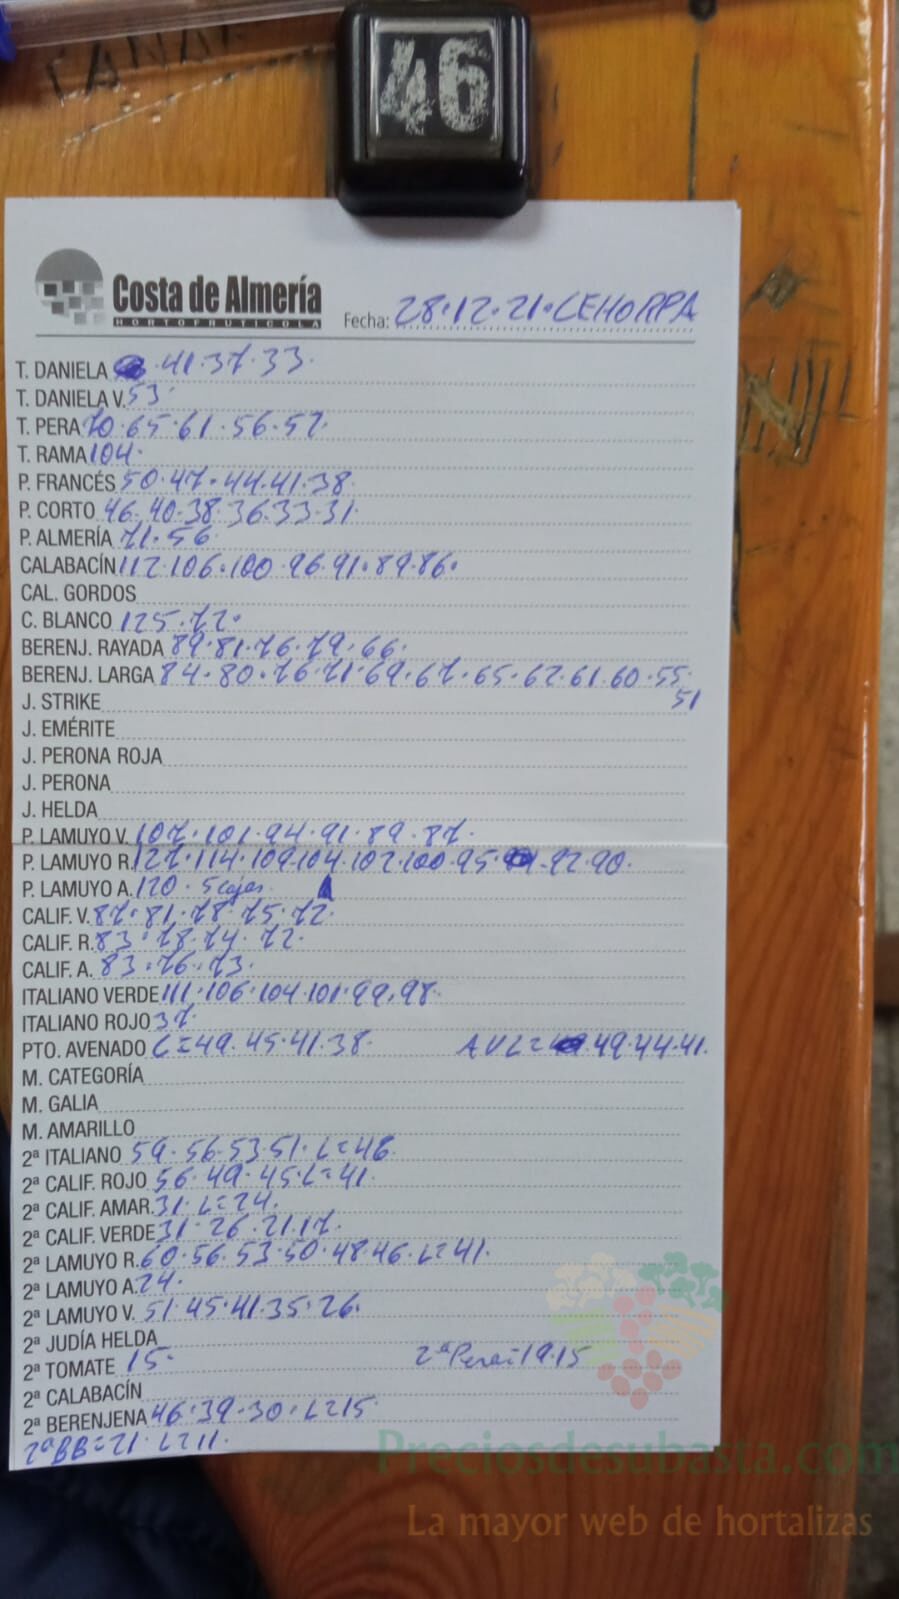 46
Costa de Almería
HORTOFRUTICOLA
Fecha: 28·12·21·CEHORPA
T. DANIELA 41·37·33·
T. DANIELA V. 53·
T. PERA 70·65·61·56·52·
T. RAMA 104·
P. FRANCÉS 50·47·44·41·38
P. CORTO 46·40·38·36·33·31·
P. ALMERÍA 71·56
CALABACÍN 112·106·100·96·91·89·86·
CAL. GORDOS
C. BLANCO 125·72·
BERENJ. RAYADA 89·81·76·79·66·
BERENJ. LARGA 84·80·76·71·69·67·65·62·61·60·55·
51
J. STRIKE
J. EMÉRITE
J. PERONA ROJA
J. PERONA
J. HELDA
P. LAMUYO V. 107·101·94·91·89·87·
P. LAMUYO R. 127·114·109·104·102·100·95·92·90·
P. LAMUYO A. 120·5cajas·
CALIF. V. 87·81·78·75·72·
CALIF. R. 83·78·74·72·
CALIF. A. 83·76·73·
ITALIANO VERDE 111·106·104·101·99·98·
ITALIANO ROJO 37·
PTO. AVENADO L=49·45·41·38· AVL=49·44·41·
M. CATEGORÍA
M. GALIA
M. AMARILLO
2ª ITALIANO 59·56·53·51·L=46·
2ª CALIF. ROJO 56·49·45·L=41·
2ª CALIF. AMAR. 31·L=24·
2ª CALIF. VERDE 31·26·21·17·
2ª LAMUYO R. 60·56·53·50·48·46·L=41·
2ª LAMUYO A. 24·
2ª LAMUYO V. 51·45·41·35·26·
2ª JUDÍA HELDA
2ª TOMATE 15· 2ªPera=19·15
2ª CALABACÍN
2ª BERENJENA 46·39·30·L=15·
2ªBB=21·L=11·
Preciosdesubasta.com
La mayor web de hortalizas